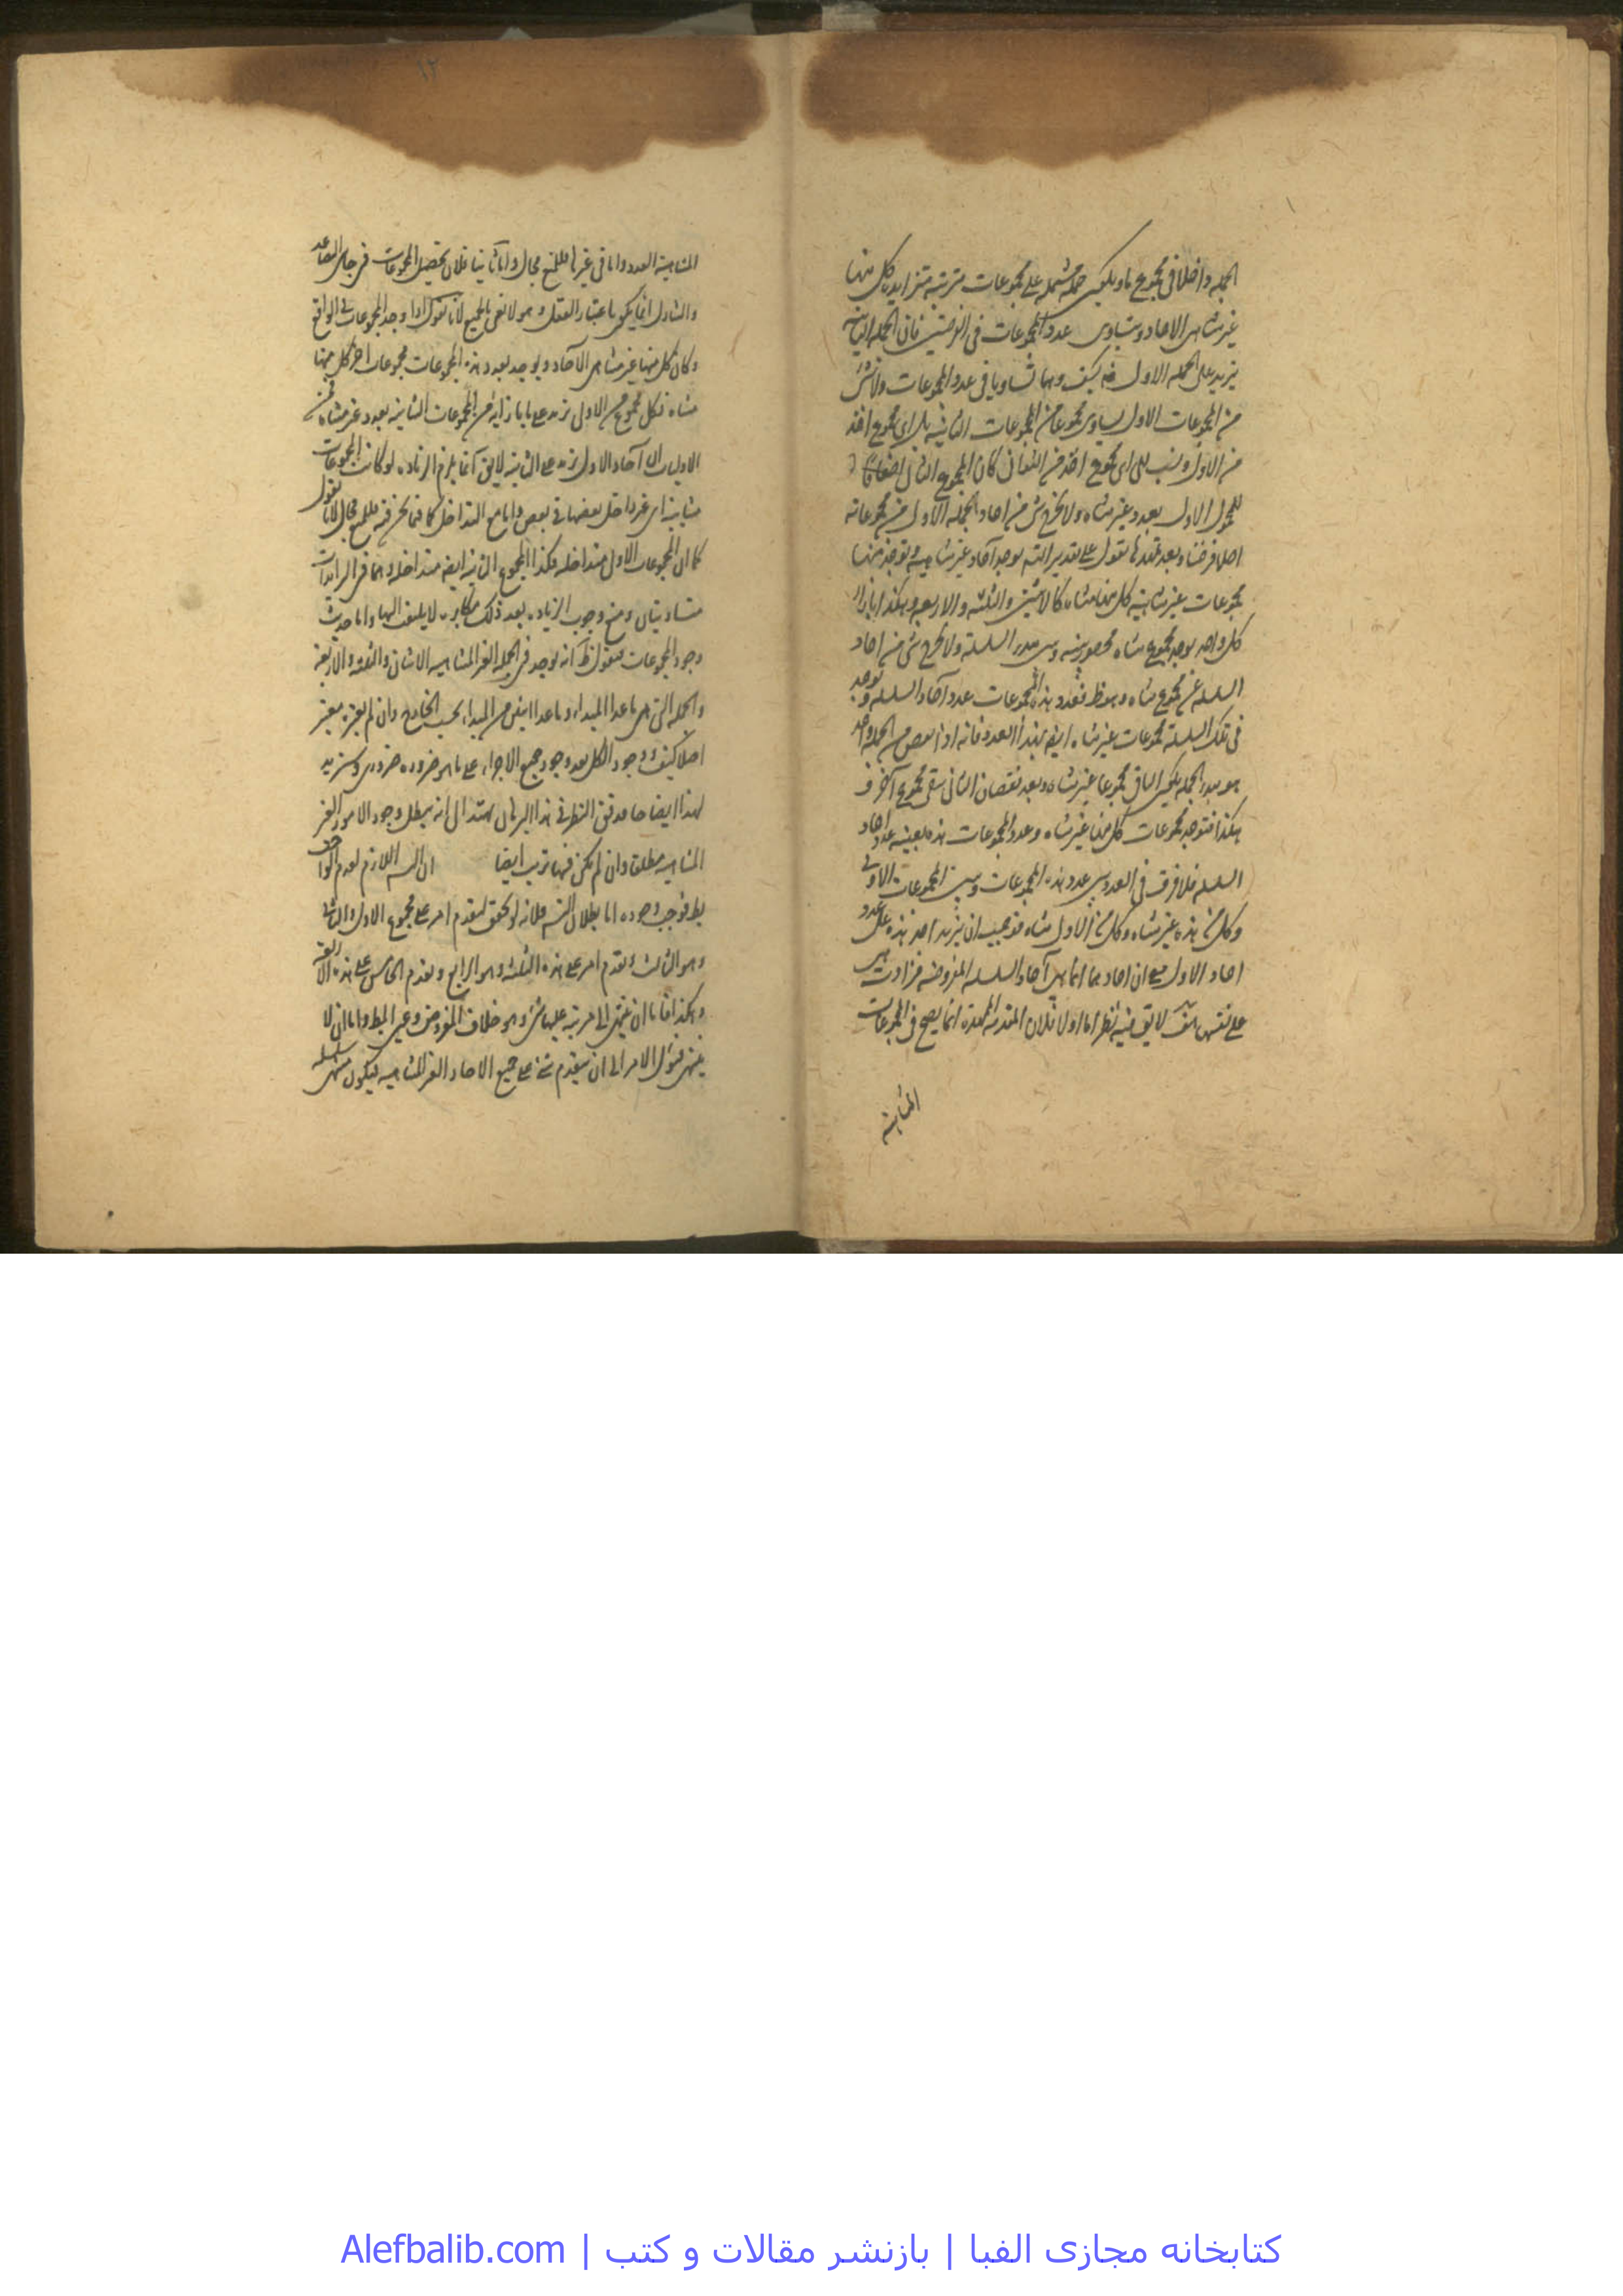 الجمله داخلا فی مجموع ما ویکون جملة مشتمله علی مجموعات مترتبه متزایده کل منها
غیر متناهی الاحاد وتساوی عدد المجموعات فی الفرضین فان الجمله الثانیه
یزید علی الجمله الاولی فیه کیف وهما تساویا فی عدد المجموعات ولا شیٔ
من المجموعات الاول یساوی مجموعا من المجموعات الثانیه بل ای مجموع اخذ
من الاول ونسب الی ای مجموع اخذ من الثوانی کان المجموع الثانی اضعافا
للمجموع الاول بعدد غیر متناه ولا یخرج شئ من احاد الجمله الاولی من مجموعاته
اصلا فرضنا وبعد تمهیدها نقول علی تقدیر التسه یوجد آحاد غیر متناهیه ویوجد منها
مجموعات غیر متناهیة کل منها متناه کالاثنین والثلثه والاربعه وهکذا بازاء
کل واحد یوجد مجموع متناه محصور بینه وبین مبدء السلسلة ولا یخرج شئ من احاد
السلسله عن مجموع متناه وهو ظ فعدد هذه المجموعات عدد آحاد السلسله ویوجد
فی تلک السلسلة مجموعات غیر متناه ایضه بهذا العدد فانه اذا نقص من الجمله واحد
هو مبدء الجمله یکون الباقی مجموعا غیر متناه وبعد نقصان الثانی یبقی مجموع آخر و
هکذا فیوجد مجموعات کل منها غیر متناه وعدد المجموعات هذه بعینه عدد احاد
السلسله فلا فرق فی العدد بین عدد هذه المجموعات وبین المجموعات الاولی
وکل من هذه غیر متناه وکل من الاول متناه فیجب ان یزید احاد هذه علی عدد
احاد الاول مع ان احادهما انما هی آحاد السلسله المفروضه فزادت هی
علی نفسها هف لا یق فیه نظر اما اولا فلان المقدمة الممهدة انما یصح فی المجموعات
المتناهیة
١٢
المتناهیة العدد واما فی غیرها فللمنع مجال واما ثانیا فلان تحصیل المجموعات فی جانبی التصاعد
والتنازل انما یکون باعتبار العقل وهو لا یفی بالجمیع لانا نقول اذا وجد المجموعات فی الواقع
وکان کل منها غیر متناهی الآحاد ویوجد بعدد هذه المجموعات مجموعات اخر کل منها
متناه فکل مجموع من الاولی یزید علی ما بازائه من المجموعات الثانیه بعدد غیر متناه فمن
الاولیات ان آحاد الاولی یزید علی الثانیة لا یق انما یلزم الزیاده لو کانت المجموعات
متباینه ای غیر داخل بعضها فی بعض واما مع التداخل کما فیما نحن فیه فللمنع مجال لانا نقول
کما ان المجموعات الاولی متداخله فکذا المجموع الثانیه ایضه متداخله وهما فی التداخل
متساویتان ومنع وجوب الزیاده بعد ذلک مکابره لا یلتفت الیها واما حدیث
وجود المجموعات فنقول ظ انه یوجد فی الجمله الغیر المتناهیه الاثنان والثلثه والاربعة
والجمله التی هی ما عدا المبداء وما عدا اثنین من المبداء بحسب الخارج وان لم یعتبره معتبر
اصلا کیف ووجود الکل بعد وجود جمیع الاجزاء علی ما هو ضروره ضروری وسنزید
لهذا ایضاحا ومن دقق النظر فی هذا البرهان یهتدی الی انه یبطل وجود الامور الغیر
المتناهیه مطلقا وان لم یکن فیها ترتیب ایضا ان التسه اللازم لعدم الواجب
بط فوجب وجوده اما بطلان التسه فلانه لو تحقق لتقدم امر علی مجموع الاول والثانی
وهو الثالث وتقدم امر علی هذه الثلثه وهو الرابع وتقدم الخامس علی هذه الاربعة
وهکذا فاما ان ینتهی الی مرتبة علیها شئ وهو خلاف المفروض وعین المط واما ان لا
ینتهی فیؤل الامر الی ان یتقدم شئ علی جمیع الاحاد الغیر المتناهیه فیکون منتهی سلسله
کتابخانه مجازی الفبا | بازنشر مقالات و کتب | Alefbalib.com